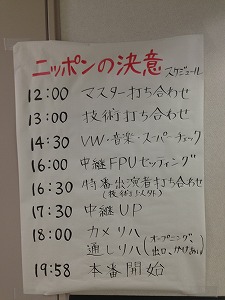 ニッポンの決意 スケジュール
12:00 マスター打ち合わせ
13:00 技術打ち合わせ
14:30 VW・音楽・スーパーチェック
16:00 中継FPUセッティング
16:30 特番出演者打ち合わせ
(技術打ち以外)
17:30 中継UP
18:00 カメリハ
通しリハ(オープニング、
出口、かけあい)
19:58 本番開始